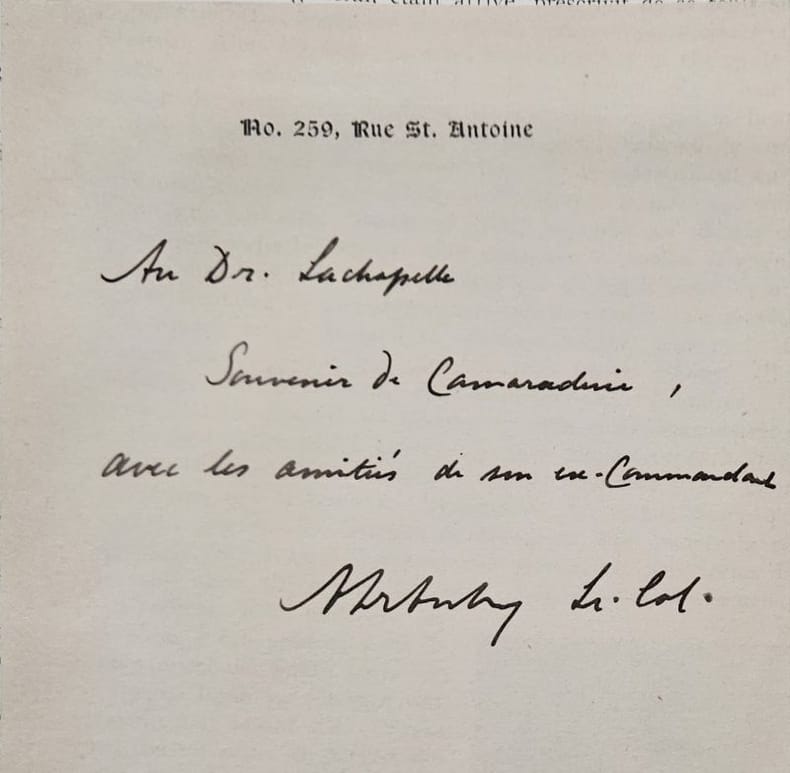 No. 259, Rue St. Antoine
Au Dr. Lachapelle
Souvenir de Camaraderie,
avec les amitiés de son ex-Commandant
Lt. Col.